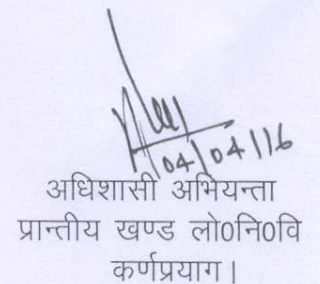 04/04/16
अधिशासी अभियन्ता
प्रान्तीय खण्ड लो0नि0वि
कर्णप्रयाग।